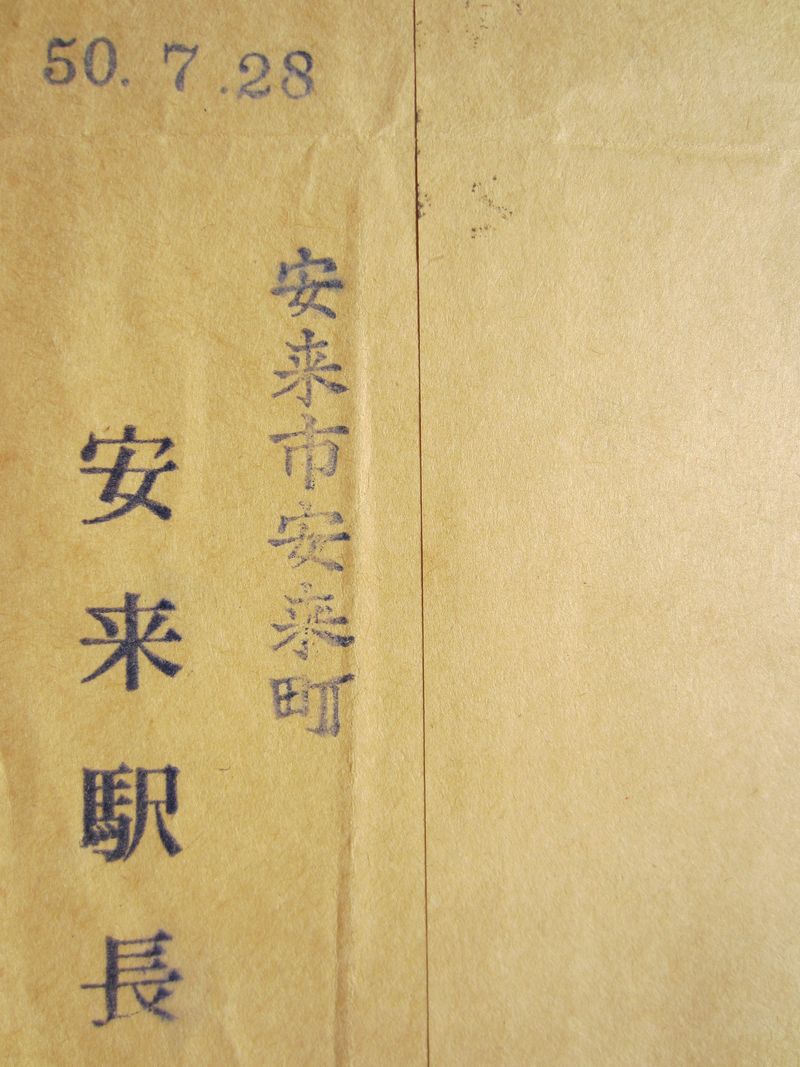 50.7.28
安来市安来町
安来駅長